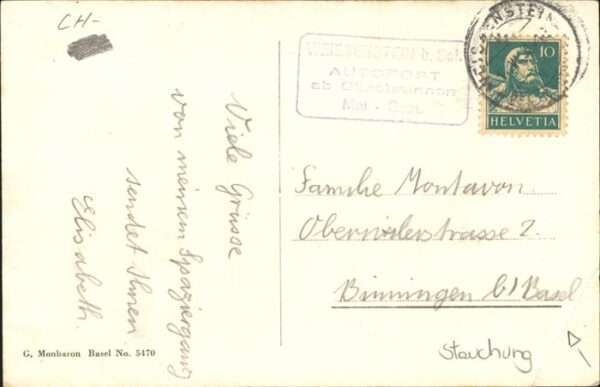 CH-
WEISSENSTEIN b. Sol.
AUTOPORT
ab Oberdorf
Mai - Sept.
10
HELVETIA
Viele Grüsse
von meinem Spaziergang
sendet Ihnen
Elisabeth.
Familie Montavon.
Oberwilerstrasse 2.
Binningen b/Basel
Stauchung
G. Monbaron Basel No. 5470